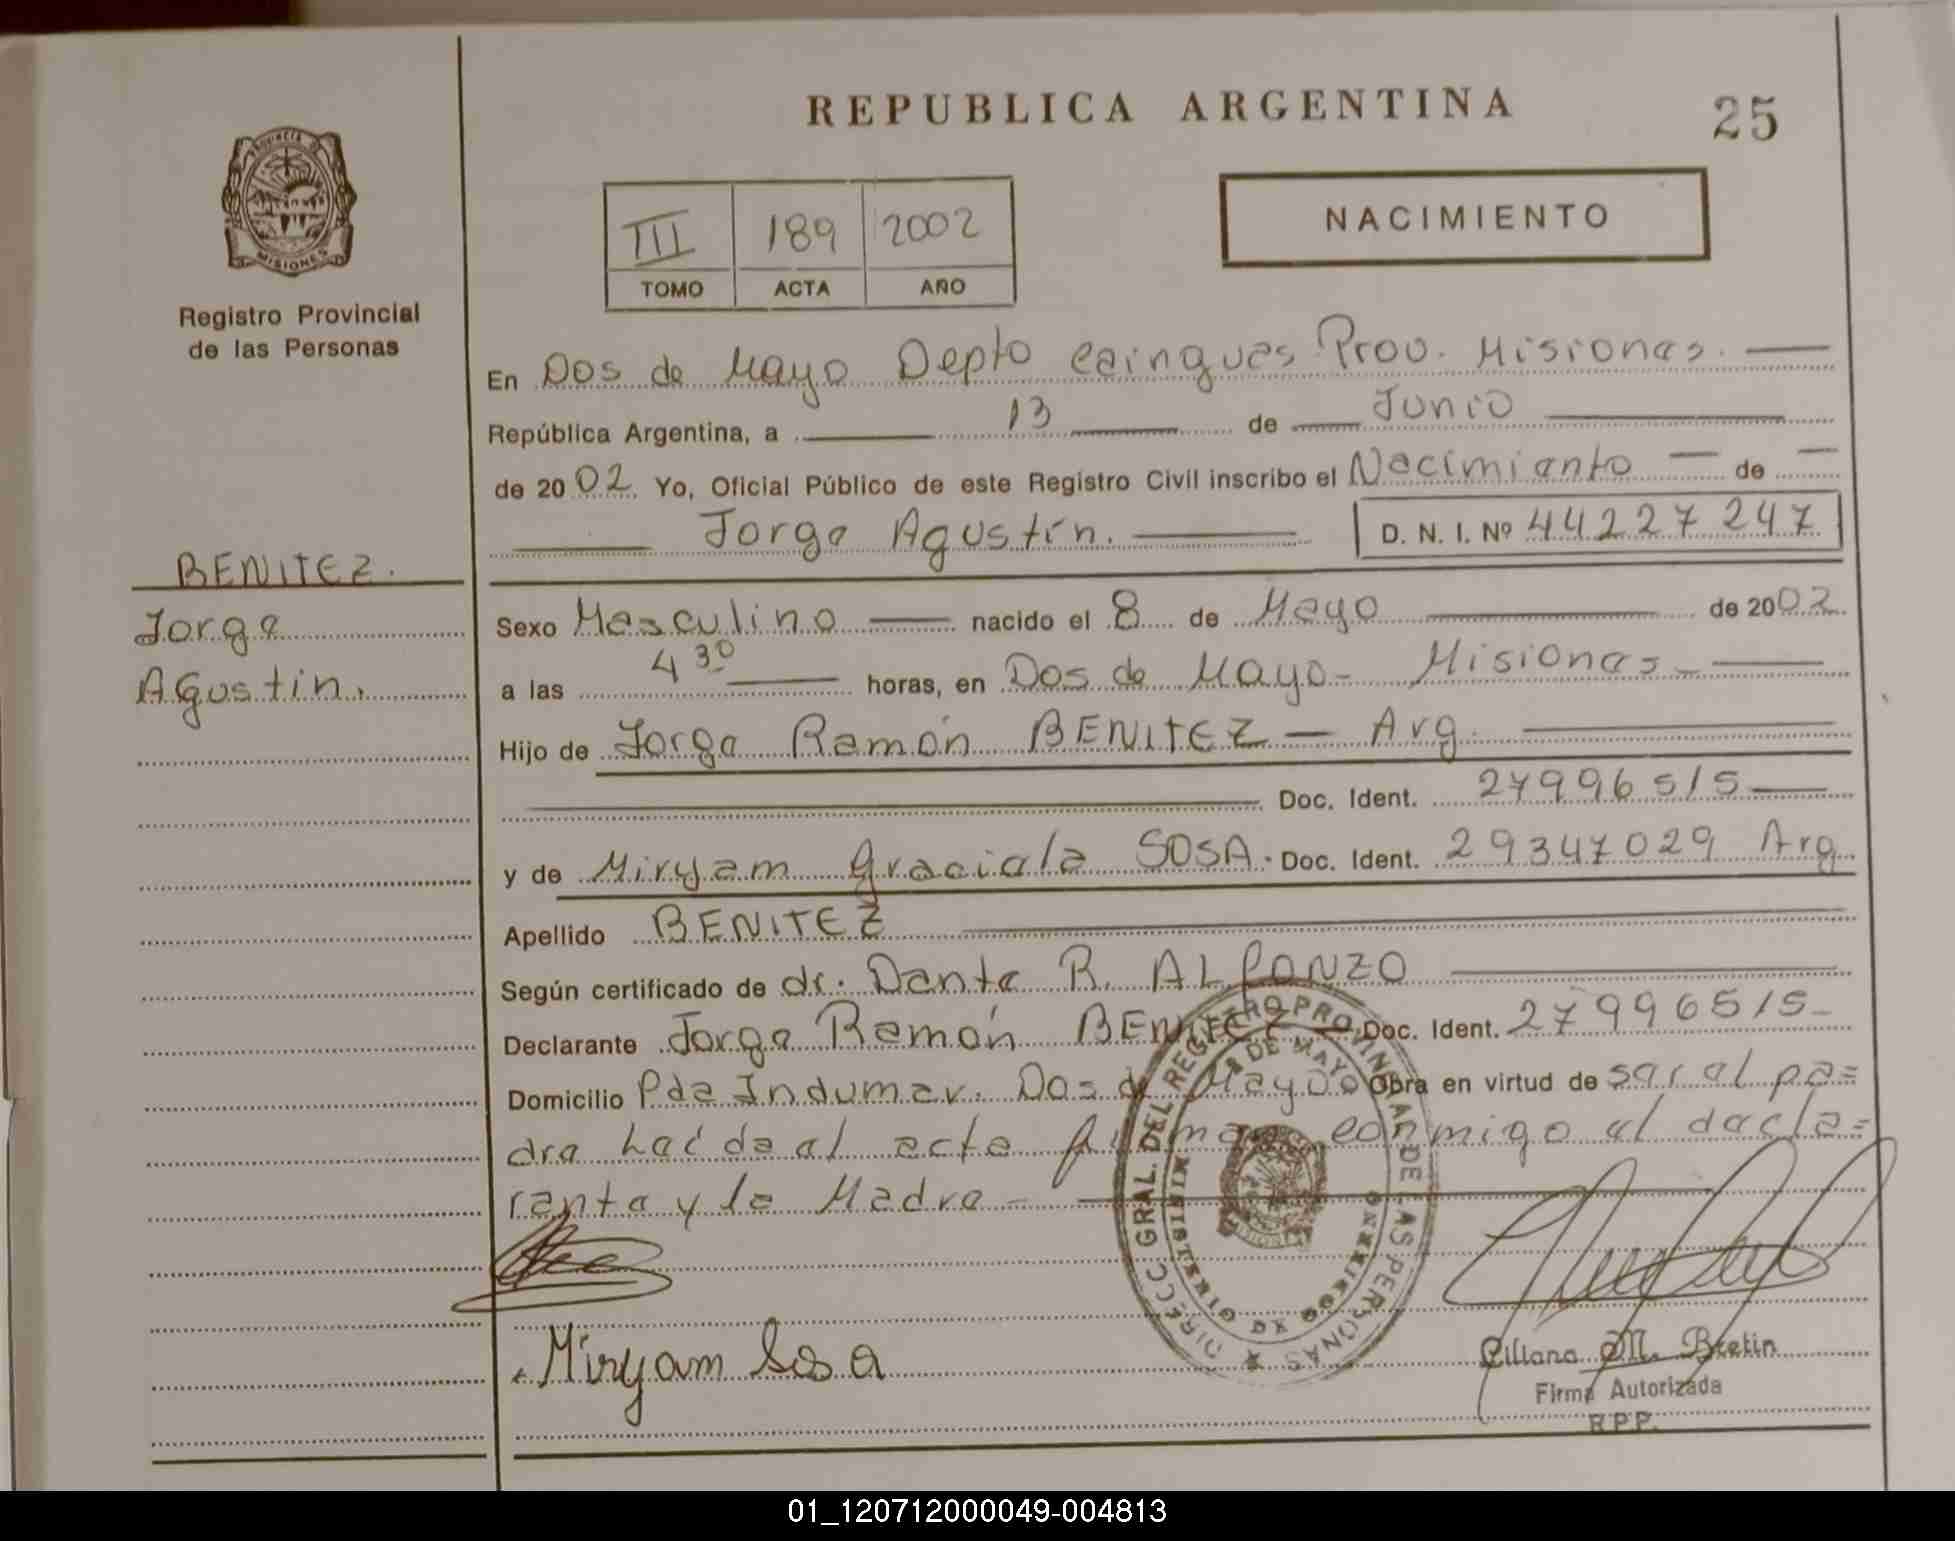 REPUBLICA ARGENTINA
25
PROVINCIA DE
MISIONES
Registro Provincial
de las Personas
III 189 2002
TOMO ACTA AÑO
NACIMIENTO
En Dos de Mayo Depto Cainguas Prov. Misiones.
República Argentina, a 13 de Junio
de 2002 Yo, Oficial Público de este Registro Civil inscribo el Nacimiento de
Jorge Agustín. D. N. I. Nº 44227247
BENITEZ.
Jorge
Agustín.
Sexo Masculino nacido el 8 de Mayo de 2002
a las 4 30 horas, en Dos de Mayo - Misiones
Hijo de Jorge Ramón BENITEZ - Arg.
Doc. Ident. 27996515
y de Miryam Graciela SOSA. Doc. Ident. 29347029 Arg
Apellido BENITEZ
Según certificado de dr. Dante R. ALFONZO
Declarante Jorge Ramón BENITEZ Doc. Ident. 27996515
Domicilio Pda Indumar. Dos de Mayo Obra en virtud de ser el pa=
dre Leída el acta firman conmigo el decla=
rante y la Madre
DIRECC. GRAL. DEL REGISTRO PROVINCIAL DE LAS PERSONAS
2 DE MAYO
MINISTERIO DE GOBIERNO
Miryam Sosa
Liliana M. Bretin
Firma Autorizada
R.P.P.
01_120712000049-004813